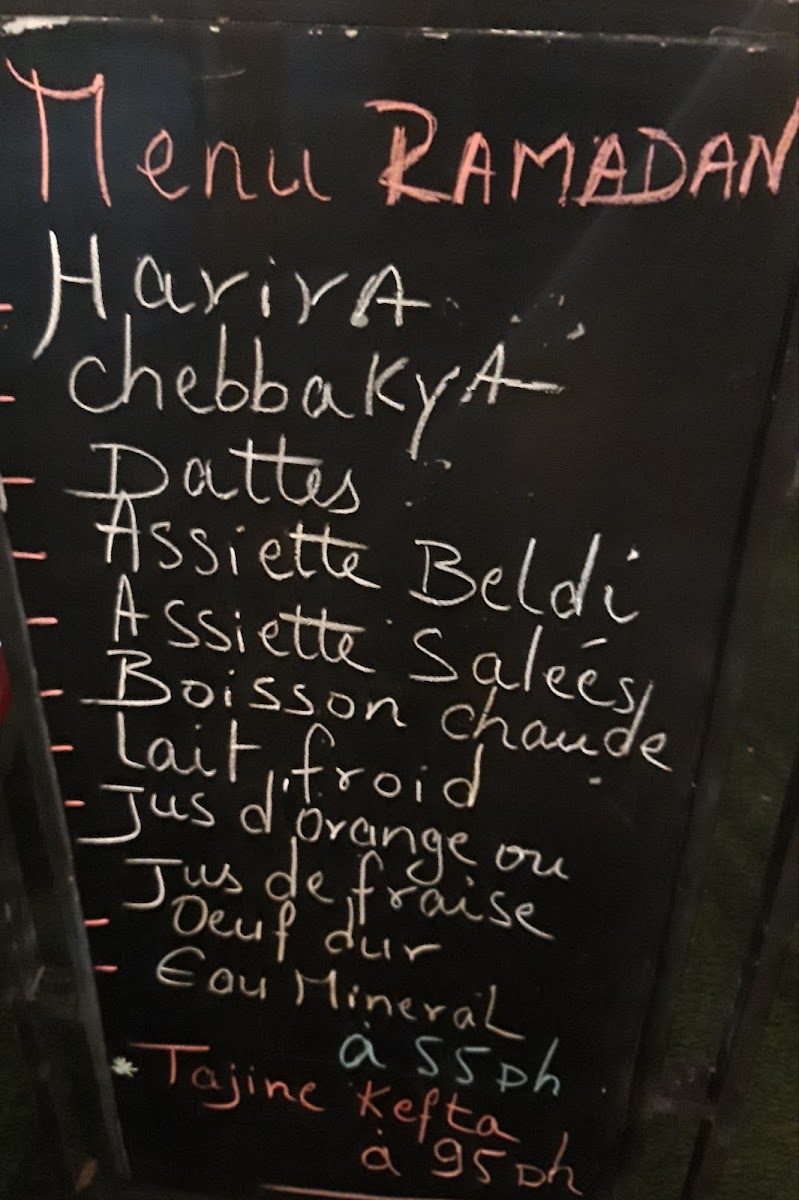 Menu RAMADAN
- HarirA
- chebbakyA
- Dattes
- Assiette Beldi
- Assiette Saleés
- Boisson chaude
- lait froid
- Jus d'orange ou
Jus de fraise
- Oeuf dur
- Eau Mineral
à 55 Dh
* Tajine Kefta
à 95 Dh